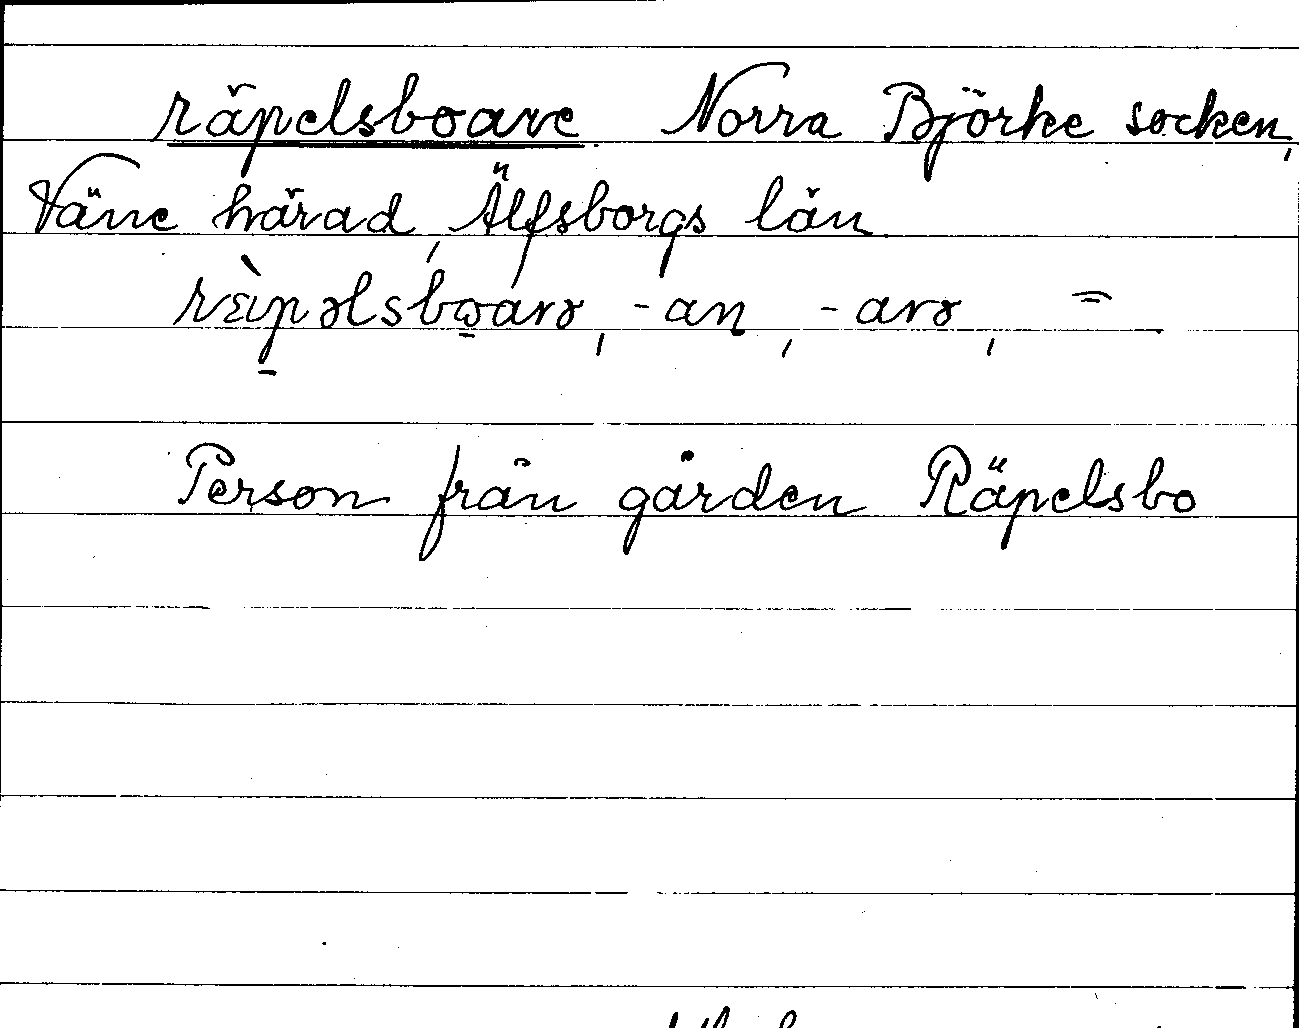 räpelsboare Norra Björke socken,
Väne härad, Älfsborgs län
rὲpəlsboarə, -an, -arə, =
Person från gården Räpelsbo